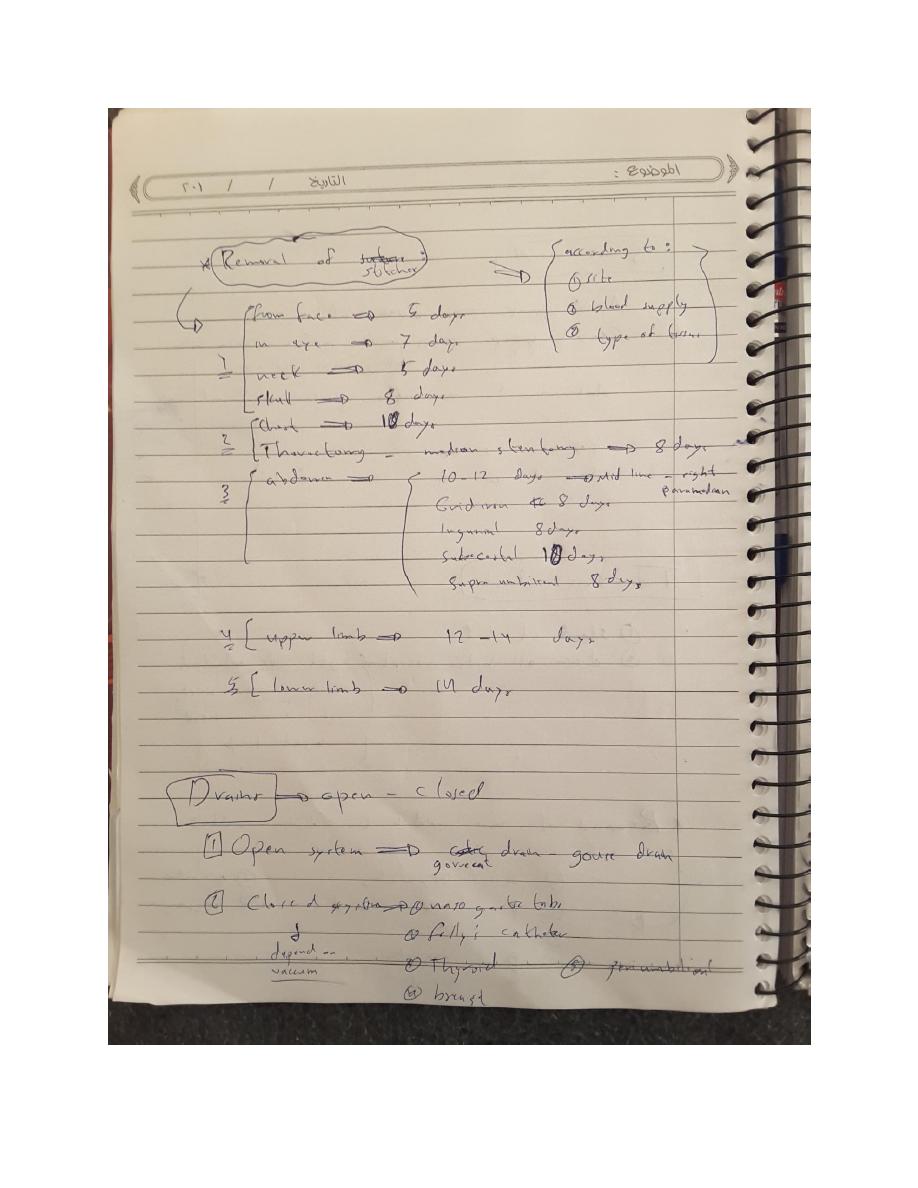 الموضوع :
التاريخ / / ٢٠١
* Removal of stitches :
according to :
① site
② blood supply
③ type of tissue
1 from face ⇒ 5 days
in eye ⇒ 7 days
neck ⇒ 5 days
skull ⇒ 8 days
2 Chest ⇒ 10 days
Thoractomy - median ⇒ 8 days
3 abdomen ⇒ 10-12 days → Mid line - right paramedian
Gridiron 8 days
Inguinal 8 days
subcostal 10 days
supra umbilical 8 days
4 [ upper limb ⇒ 12 -14 days
5 [ lower limb ⇒ 14 days
Drains ⇒ open - closed
1 Open system ⇒ drain - drain
2 Closed system ⇒ ① naso tube
② catheter
depend vaccum
③ Thyroid
④ breast
⑤